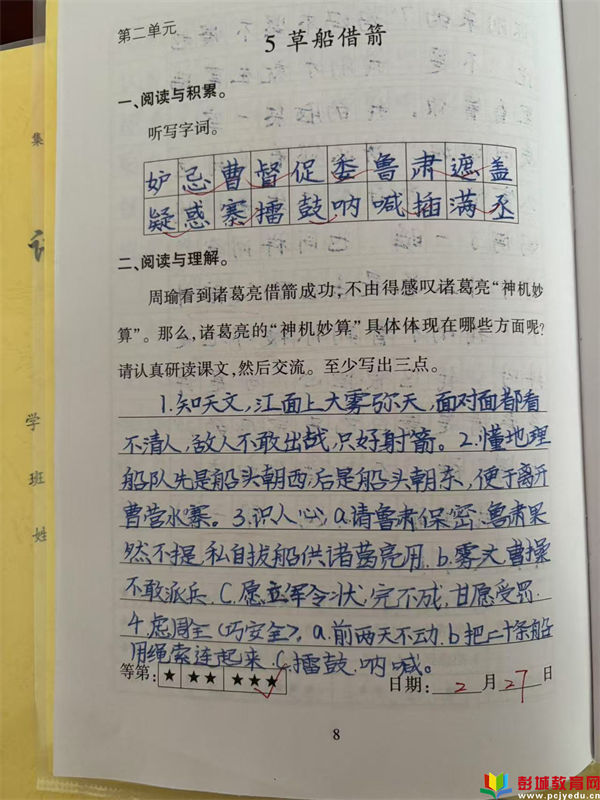 第二单元
5 草船借箭
一、阅读与积累。
听写字词。
妒忌曹督促委鲁肃遮盖
疑惑寨擂鼓呐喊插满丞
二、阅读与理解。
周瑜看到诸葛亮借箭成功,不由得感叹诸葛亮“神机妙
算”。那么,诸葛亮的“神机妙算”具体体现在哪些方面呢?
请认真研读课文,然后交流。至少写出三点。
1.知天文,江面上大雾弥天,面对面都看
不清人,敌人不敢出战,只好射箭。2.懂地理
船队先是船头朝西,后是船头朝东,便于离开
曹营水寨。3.识人心,a.请鲁肃保密.鲁肃果
然不提,私自拔船供诸葛亮用.b.雾大,曹操
不敢派兵.C.愿立军令状,完不成,甘愿受罚.
4.虑周全(巧安全).a.前两天不动.b把二十条船
用绳索连起来.C.擂鼓.呐喊。
等第: ★ ★★ ★★★
日期: 2 月 27 日
8
集
学
班
姓
彭城教育网
www.pcjyedu.cn